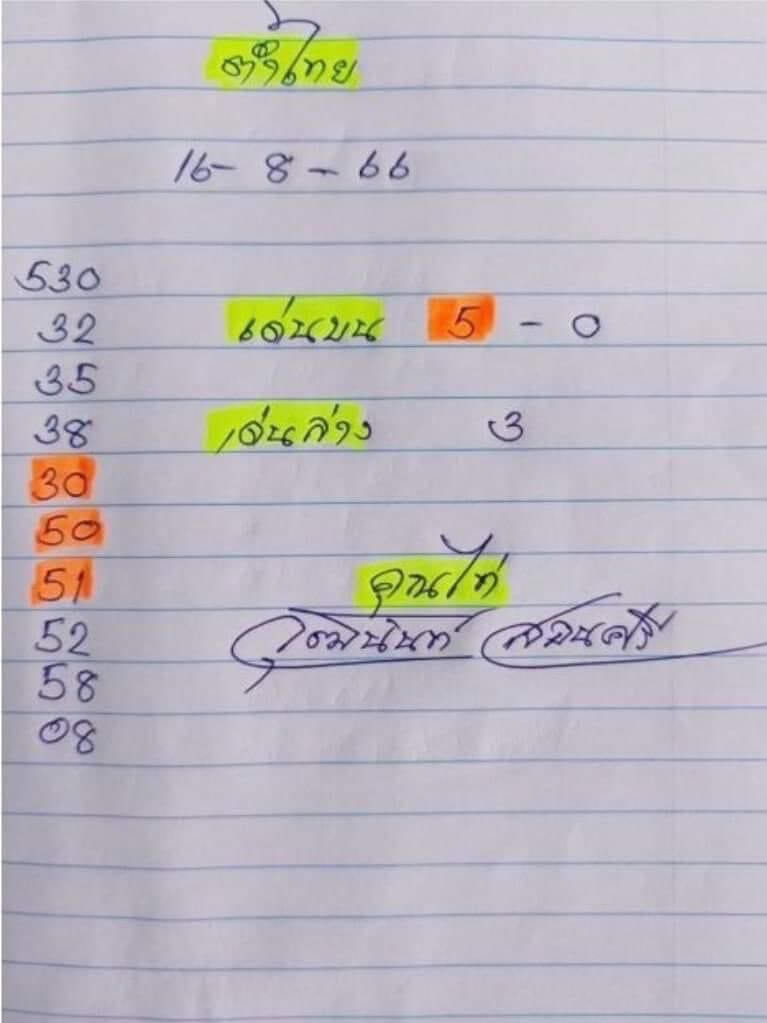 ตำไทย
16-8-66
530
32 เด่นบน 5 - 0
35
38 เด่นล่าง 3
30
50
51 คุณไก่
52
58
08